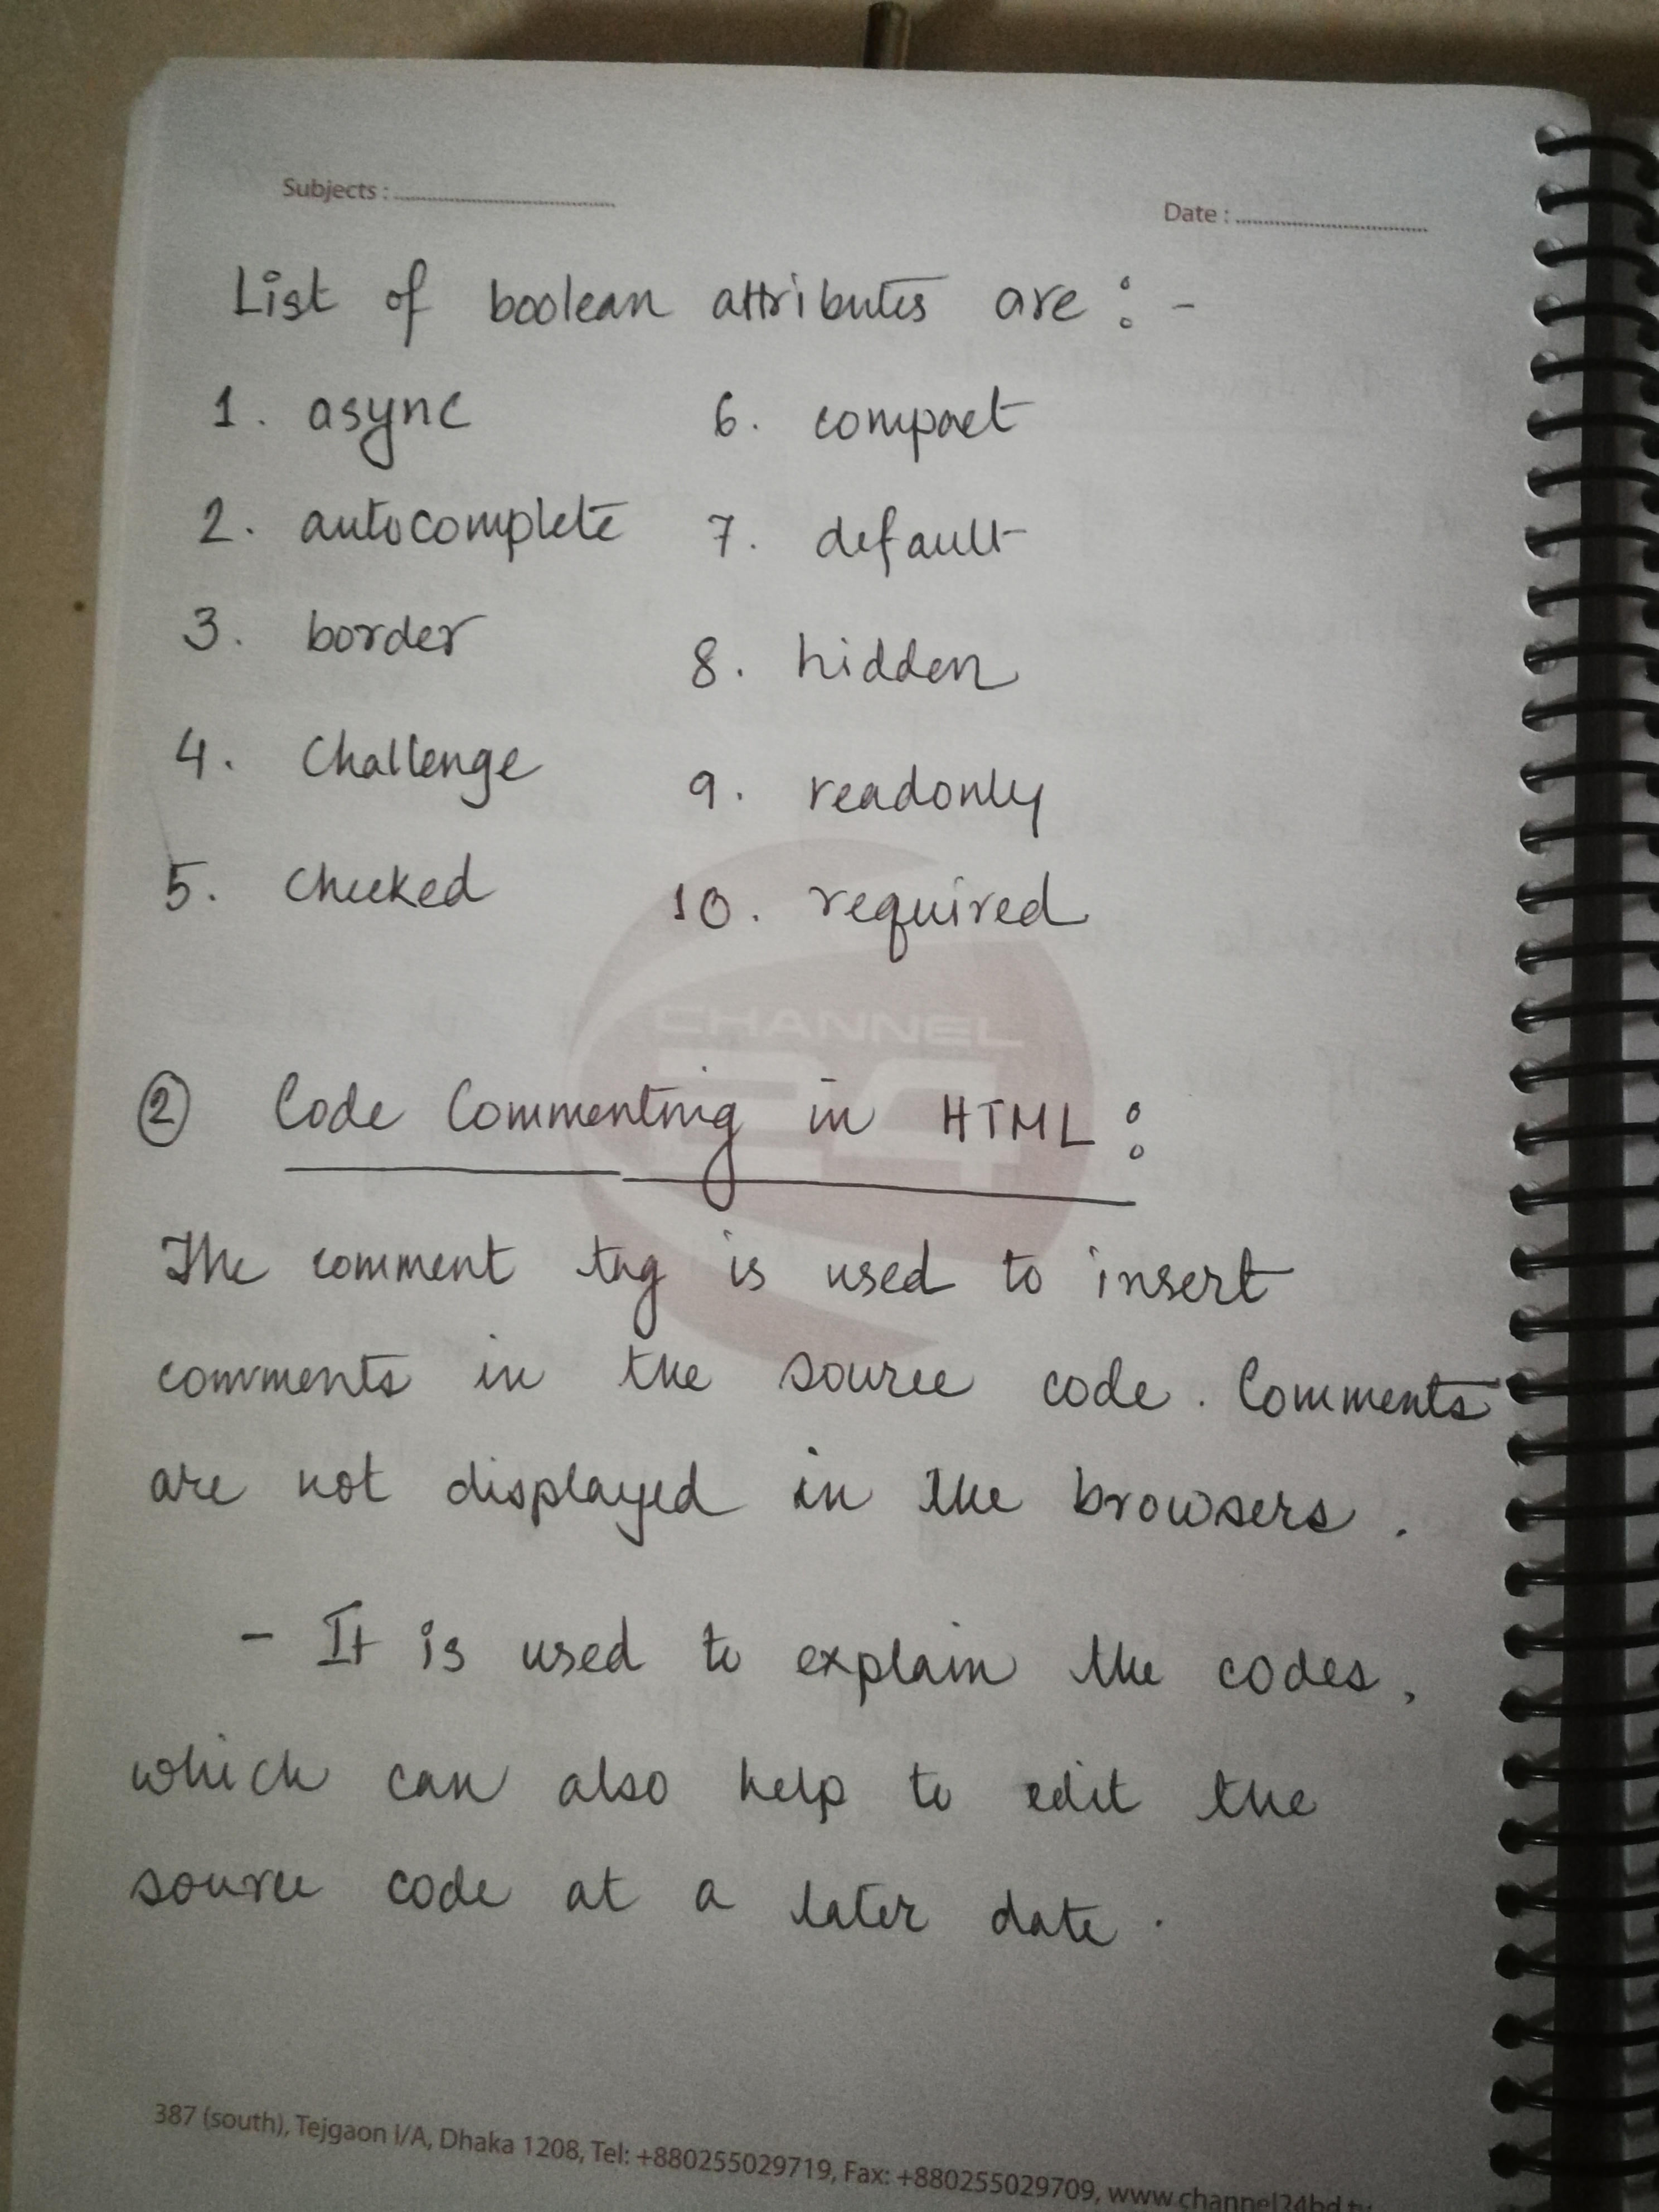 Subjects : ........................ Date : ........................
List of boolean attributes are : -
1. async 6. compact
2. autocomplete 7. default
3. border 8. hidden
4. Challenge 9. readonly
5. Checked 10. required
CHANNEL
24
② Code Commenting in HTML :
The comment tag is used to insert
comments in the source code. Comments
are not displayed in the browsers.
- It is used to explain the codes,
which can also help to edit the
source code at a later date.
387 (south), Tejgaon I/A, Dhaka 1208, Tel: +880255029719, Fax: +880255029709, www.channel24bd.tv